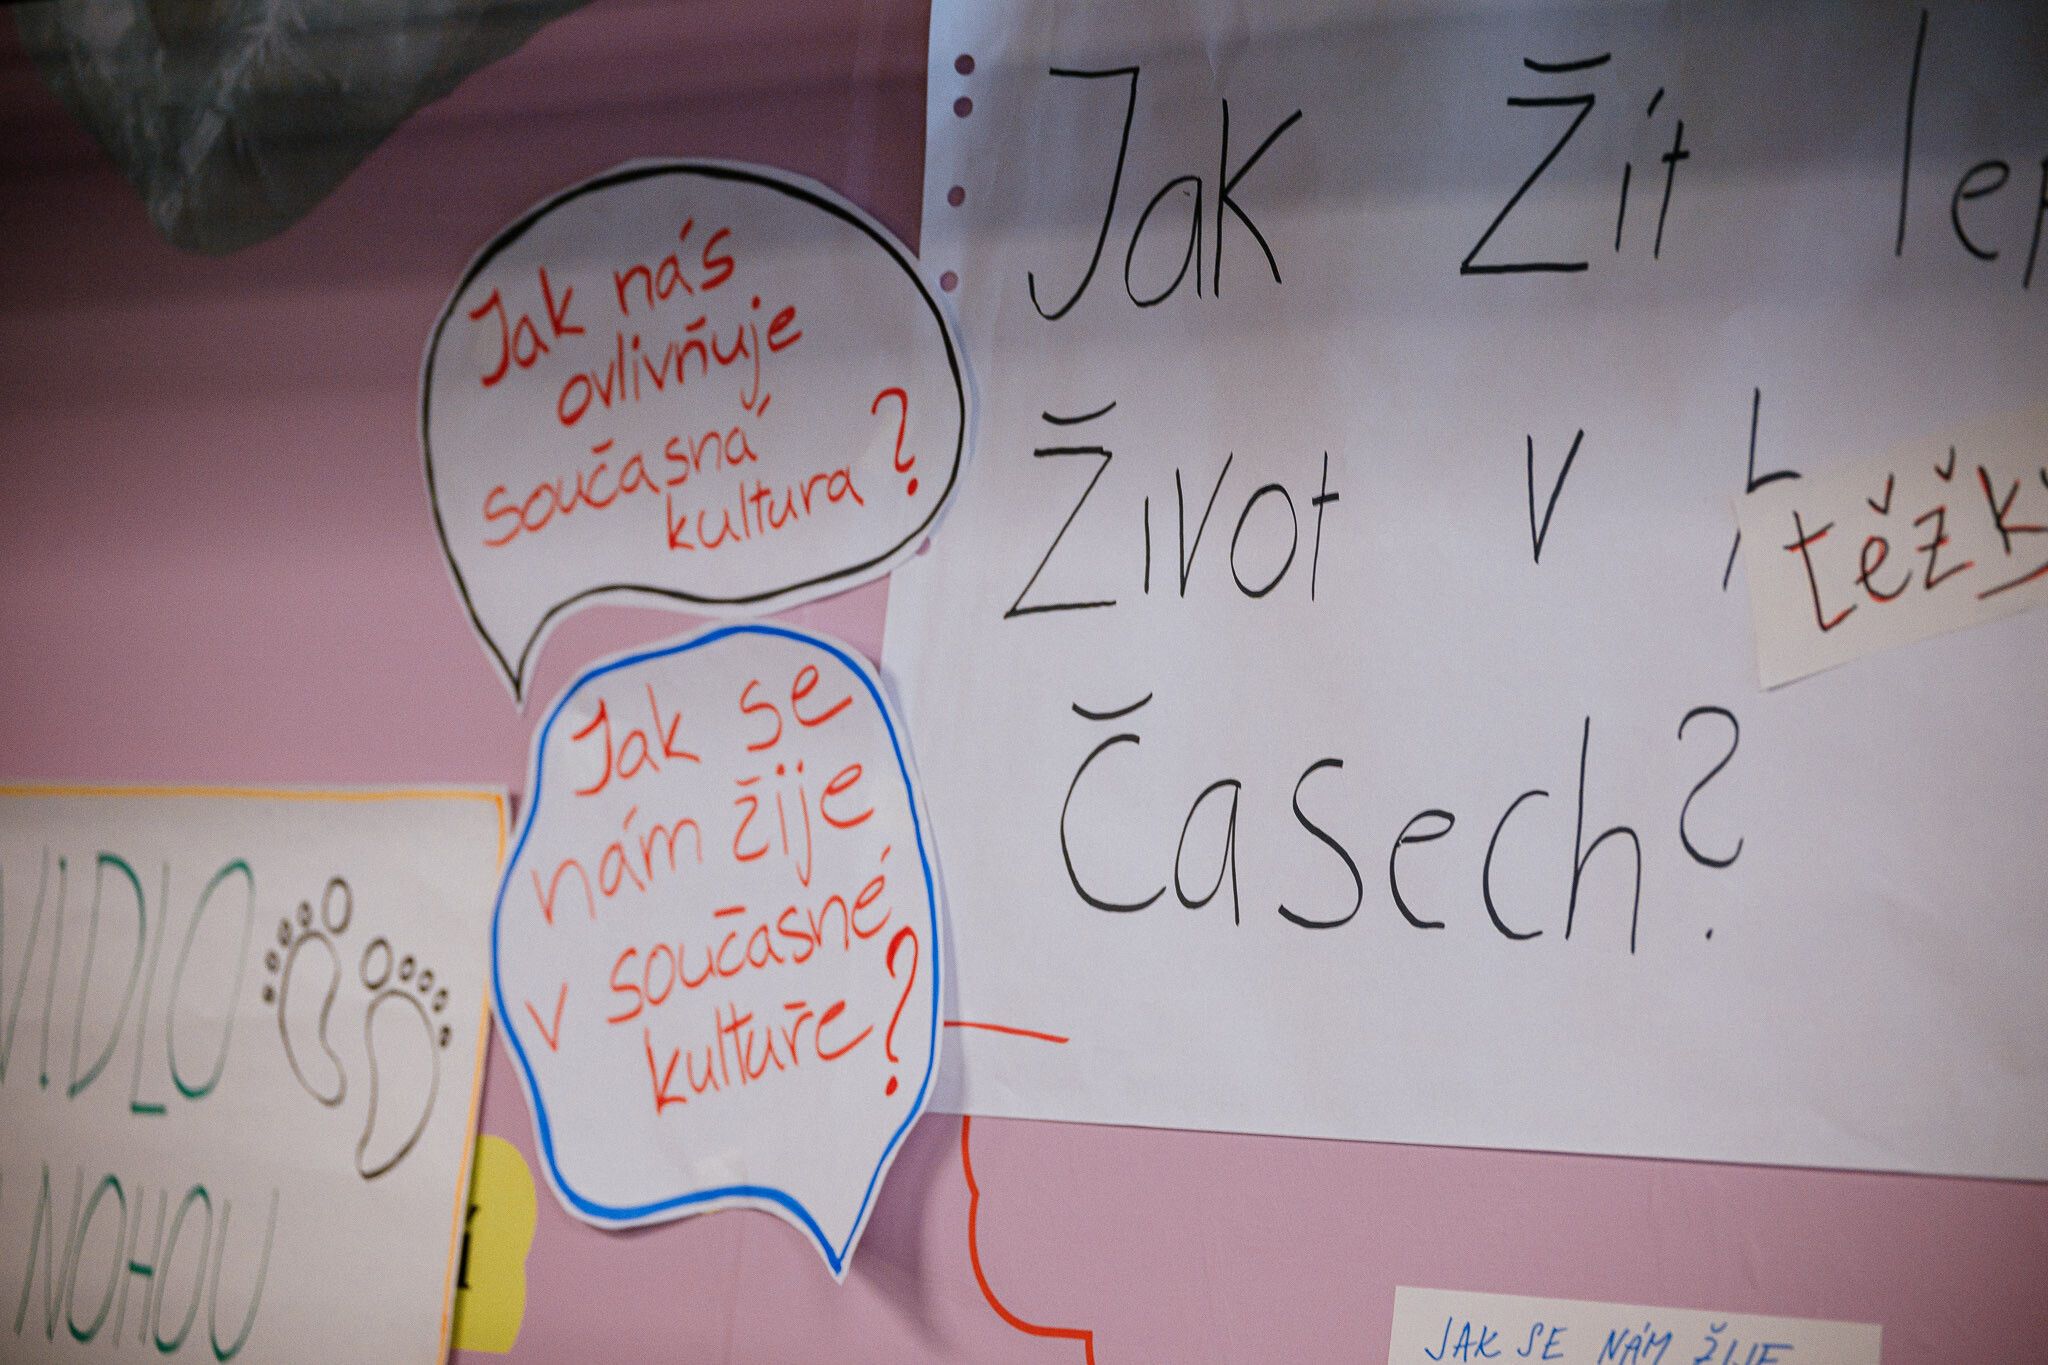 Jak nás
ovlivňuje
současná
kultura?
Jak se
nám žije
v současné
kultuře?
Jak Žít
Život v
těžk
Časech?
NOHOU
JAK SE NÁM ŽIJE